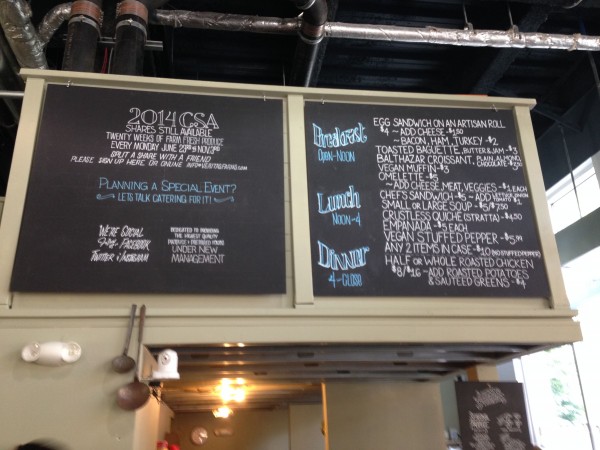 2014 CSA
SHARES STILL AVAILABLE
TWENTY WEEKS OF FARM FRESH PRODUCE
EVERY MONDAY JUNE 23RD - NOV. 3RD
SPLIT A SHARE WITH A FRIEND
PLEASE SIGN UP HERE OR ONLINE
PLANNING A SPECIAL EVENT?
LET'S TALK CATERING FOR IT!
WE'RE SOCIAL
FACEBOOK
TWITTER & INSTAGRAM
DEDICATED TO BRINGING
THE HIGHEST QUALITY
PREPARED FOODS
UNDER NEW
MANAGEMENT
Breakfast
OPEN-NOON
Lunch
NOON-4
Dinner
4-CLOSE
EGG SANDWICH ON AN ARTISAN ROLL
$4 ~ ADD CHEESE - $.50
~ BACON, HAM, TURKEY - $2
TOASTED BAGUETTE, BUTTER & JAM - $3
BALTHAZAR CROISSANT, PLAIN, ALMOND,
CHOCOLATE
VEGAN MUFFIN - $3
OMELETTE - $5
~ ADD CHEESE, MEAT, VEGGIES - $1 EACH
CHEF'S SANDWICH - $5 ~ ADD
SMALL OR LARGE SOUP - $5/$7.50
CRUSTLESS QUICHE (STRATTA) - $4.50
EMPANADA - $5
VEGAN STUFFED PEPPER - $5.99
ANY 2 ITEMS IN CASE - $10 (NO STUFFED PEPPER)
HALF OR WHOLE ROASTED CHICKEN
$8/$16 ~ ADD ROASTED POTATOES
& SAUTEED GREENS - $4